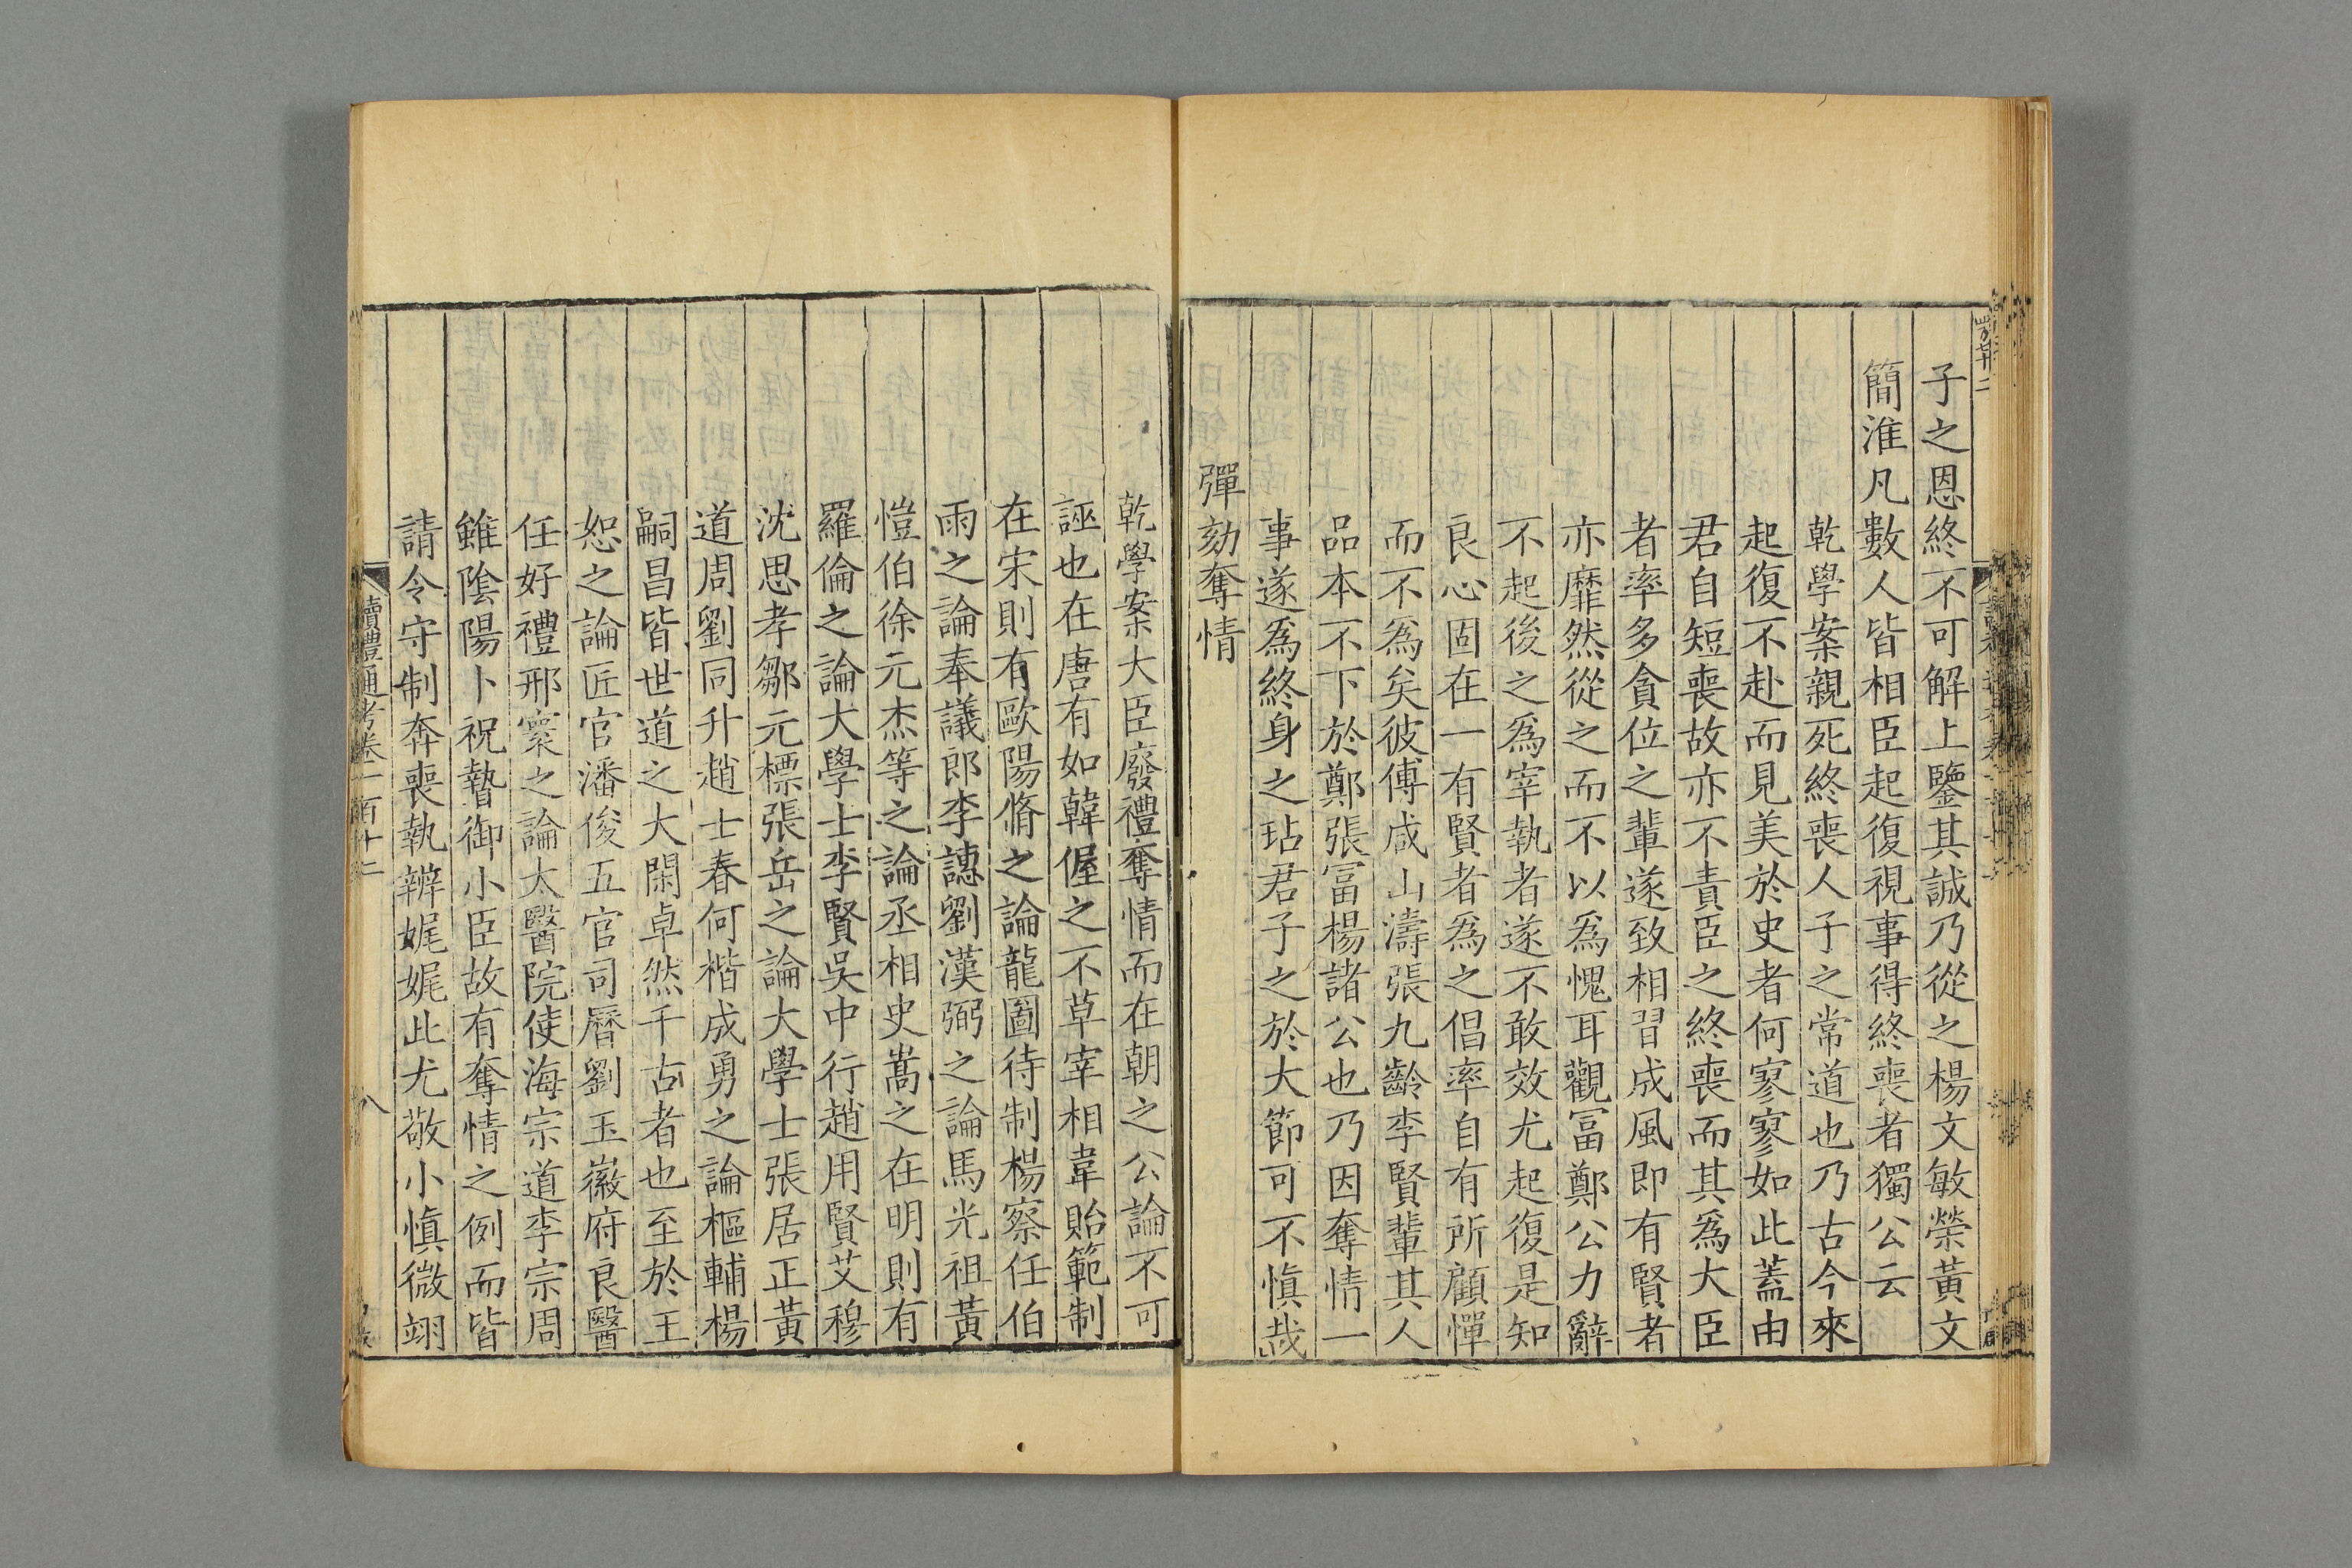 子之恩終不可解上鑒其誠乃從之楊文敏榮黃文
簡淮凡數人皆相臣起復視事得終喪者獨公云
乾學案親死終喪人子之常道也乃古今來
起復不赴而見美於史者何寥寥如此蓋由
君自短喪故亦不責臣之終喪而其爲大臣
者率多貪位之輩遂致相習成風即有賢者
亦靡然從之而不以爲愧耳觀冨鄭公力辭
不起後之爲宰執者遂不敢效尤起復是知
良心固在一有賢者爲之倡率自有所顧憚
而不爲矣彼傅咸山濤張九齡李賢輩其人
品本不下於鄭張冨楊諸公也乃因奪情一
事遂爲終身之玷君子之於大節可不愼哉
彈劾奪情
乾學案大臣廢禮奪情而在朝之公論不可
誣也在唐有如韓偓之不草宰相韋貽範制
在宋則有歐陽脩之論龍圖待制楊察任伯
雨之論奉議郎李譓劉漢弼之論馬光祖黃
愷伯徐元杰等之論丞相史嵩之在明則有
羅倫之論大學士李賢吳中行趙用賢艾穆
沈思孝鄒元標張岳之論大學士張居正黃
道周劉同升趙士春何楷成勇之論樞輔楊
嗣昌皆世道之大閑卓然千古者也至於王
恕之論匠官潘俊五官司曆劉玉徽府良醫
任好禮邢寰之論太醫院使海宗道李宗周
雖陰陽卜祝暬御小臣故有奪情之例而皆
請令守制奔喪執辨娓娓此尤敬小愼微翊
讀禮通考卷一百十二
八